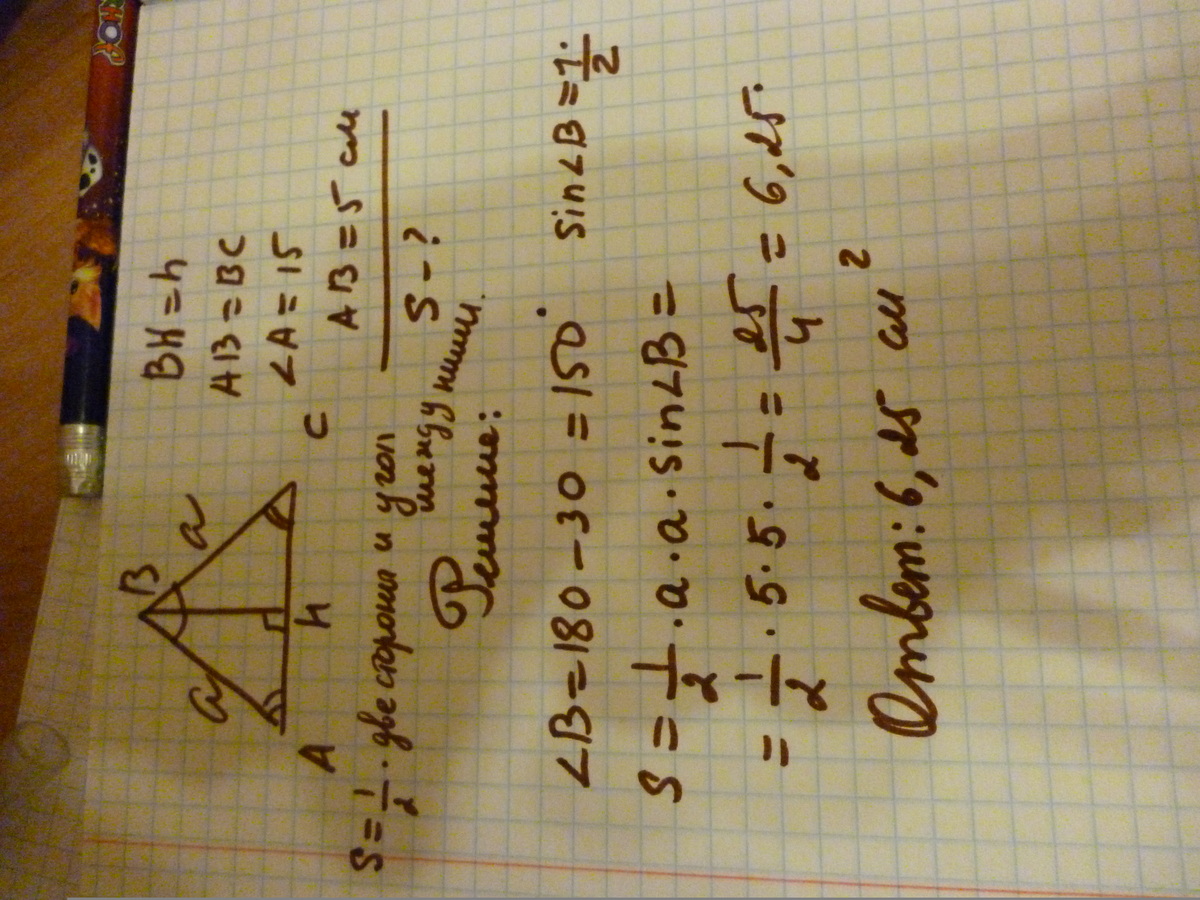 B
a a
A h C
BH = h
AB = BC
∠A = 15
AB = 5 см
S - ?
S = 1/2 · две стороны и угол
между ними.
Решение:
∠B = 180 - 30 = 150° sin∠B = 1/2
S = 1/2 · a · a · sin∠B =
= 1/2 · 5 · 5 · 1/2 = 25/4 = 6,25.
Ответ: 6,25 см²